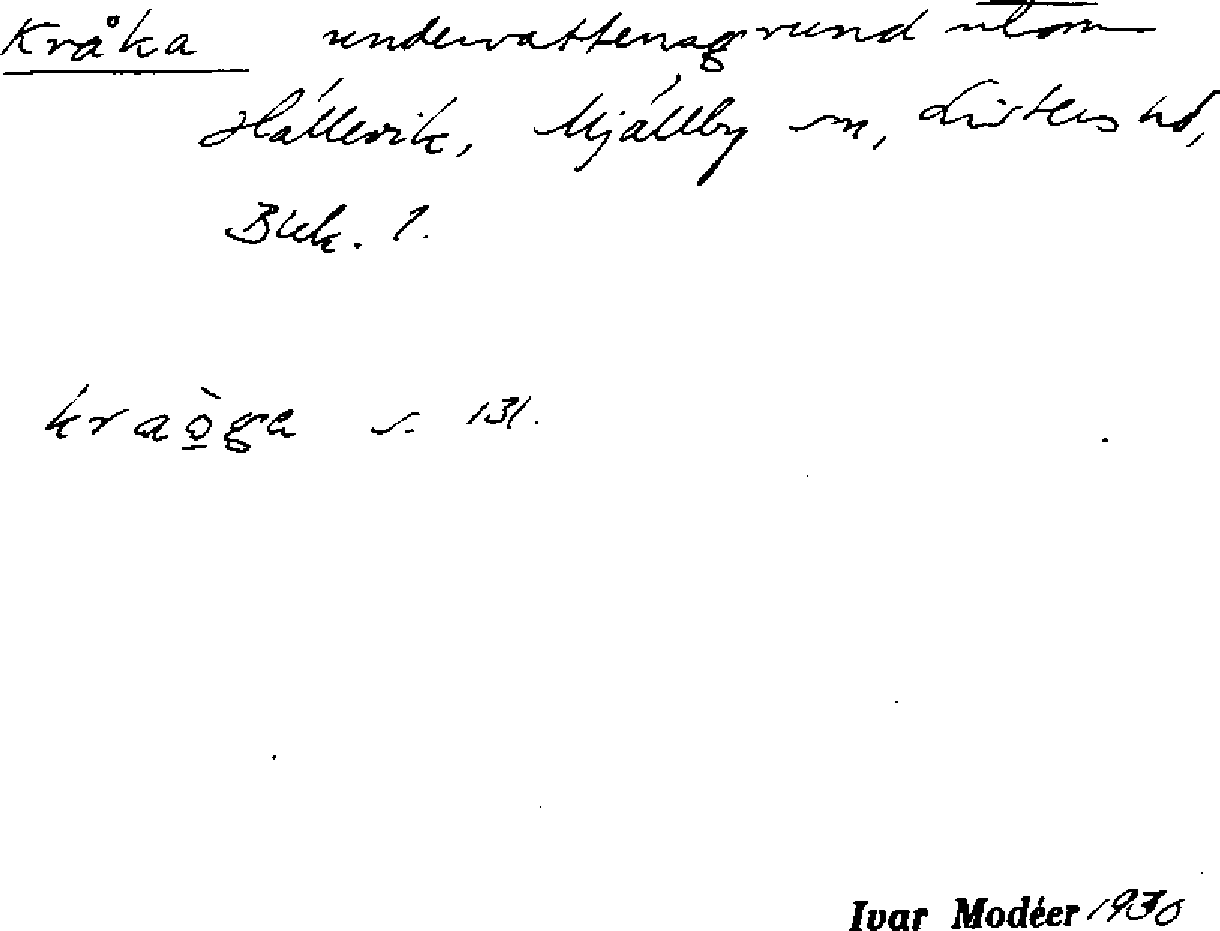 Kråka undervattensgrund utom
Hällevik, Mjällby sn, Listers hd,
Blek. l.
kraòga s. 131.
Ivar Modéer 1930